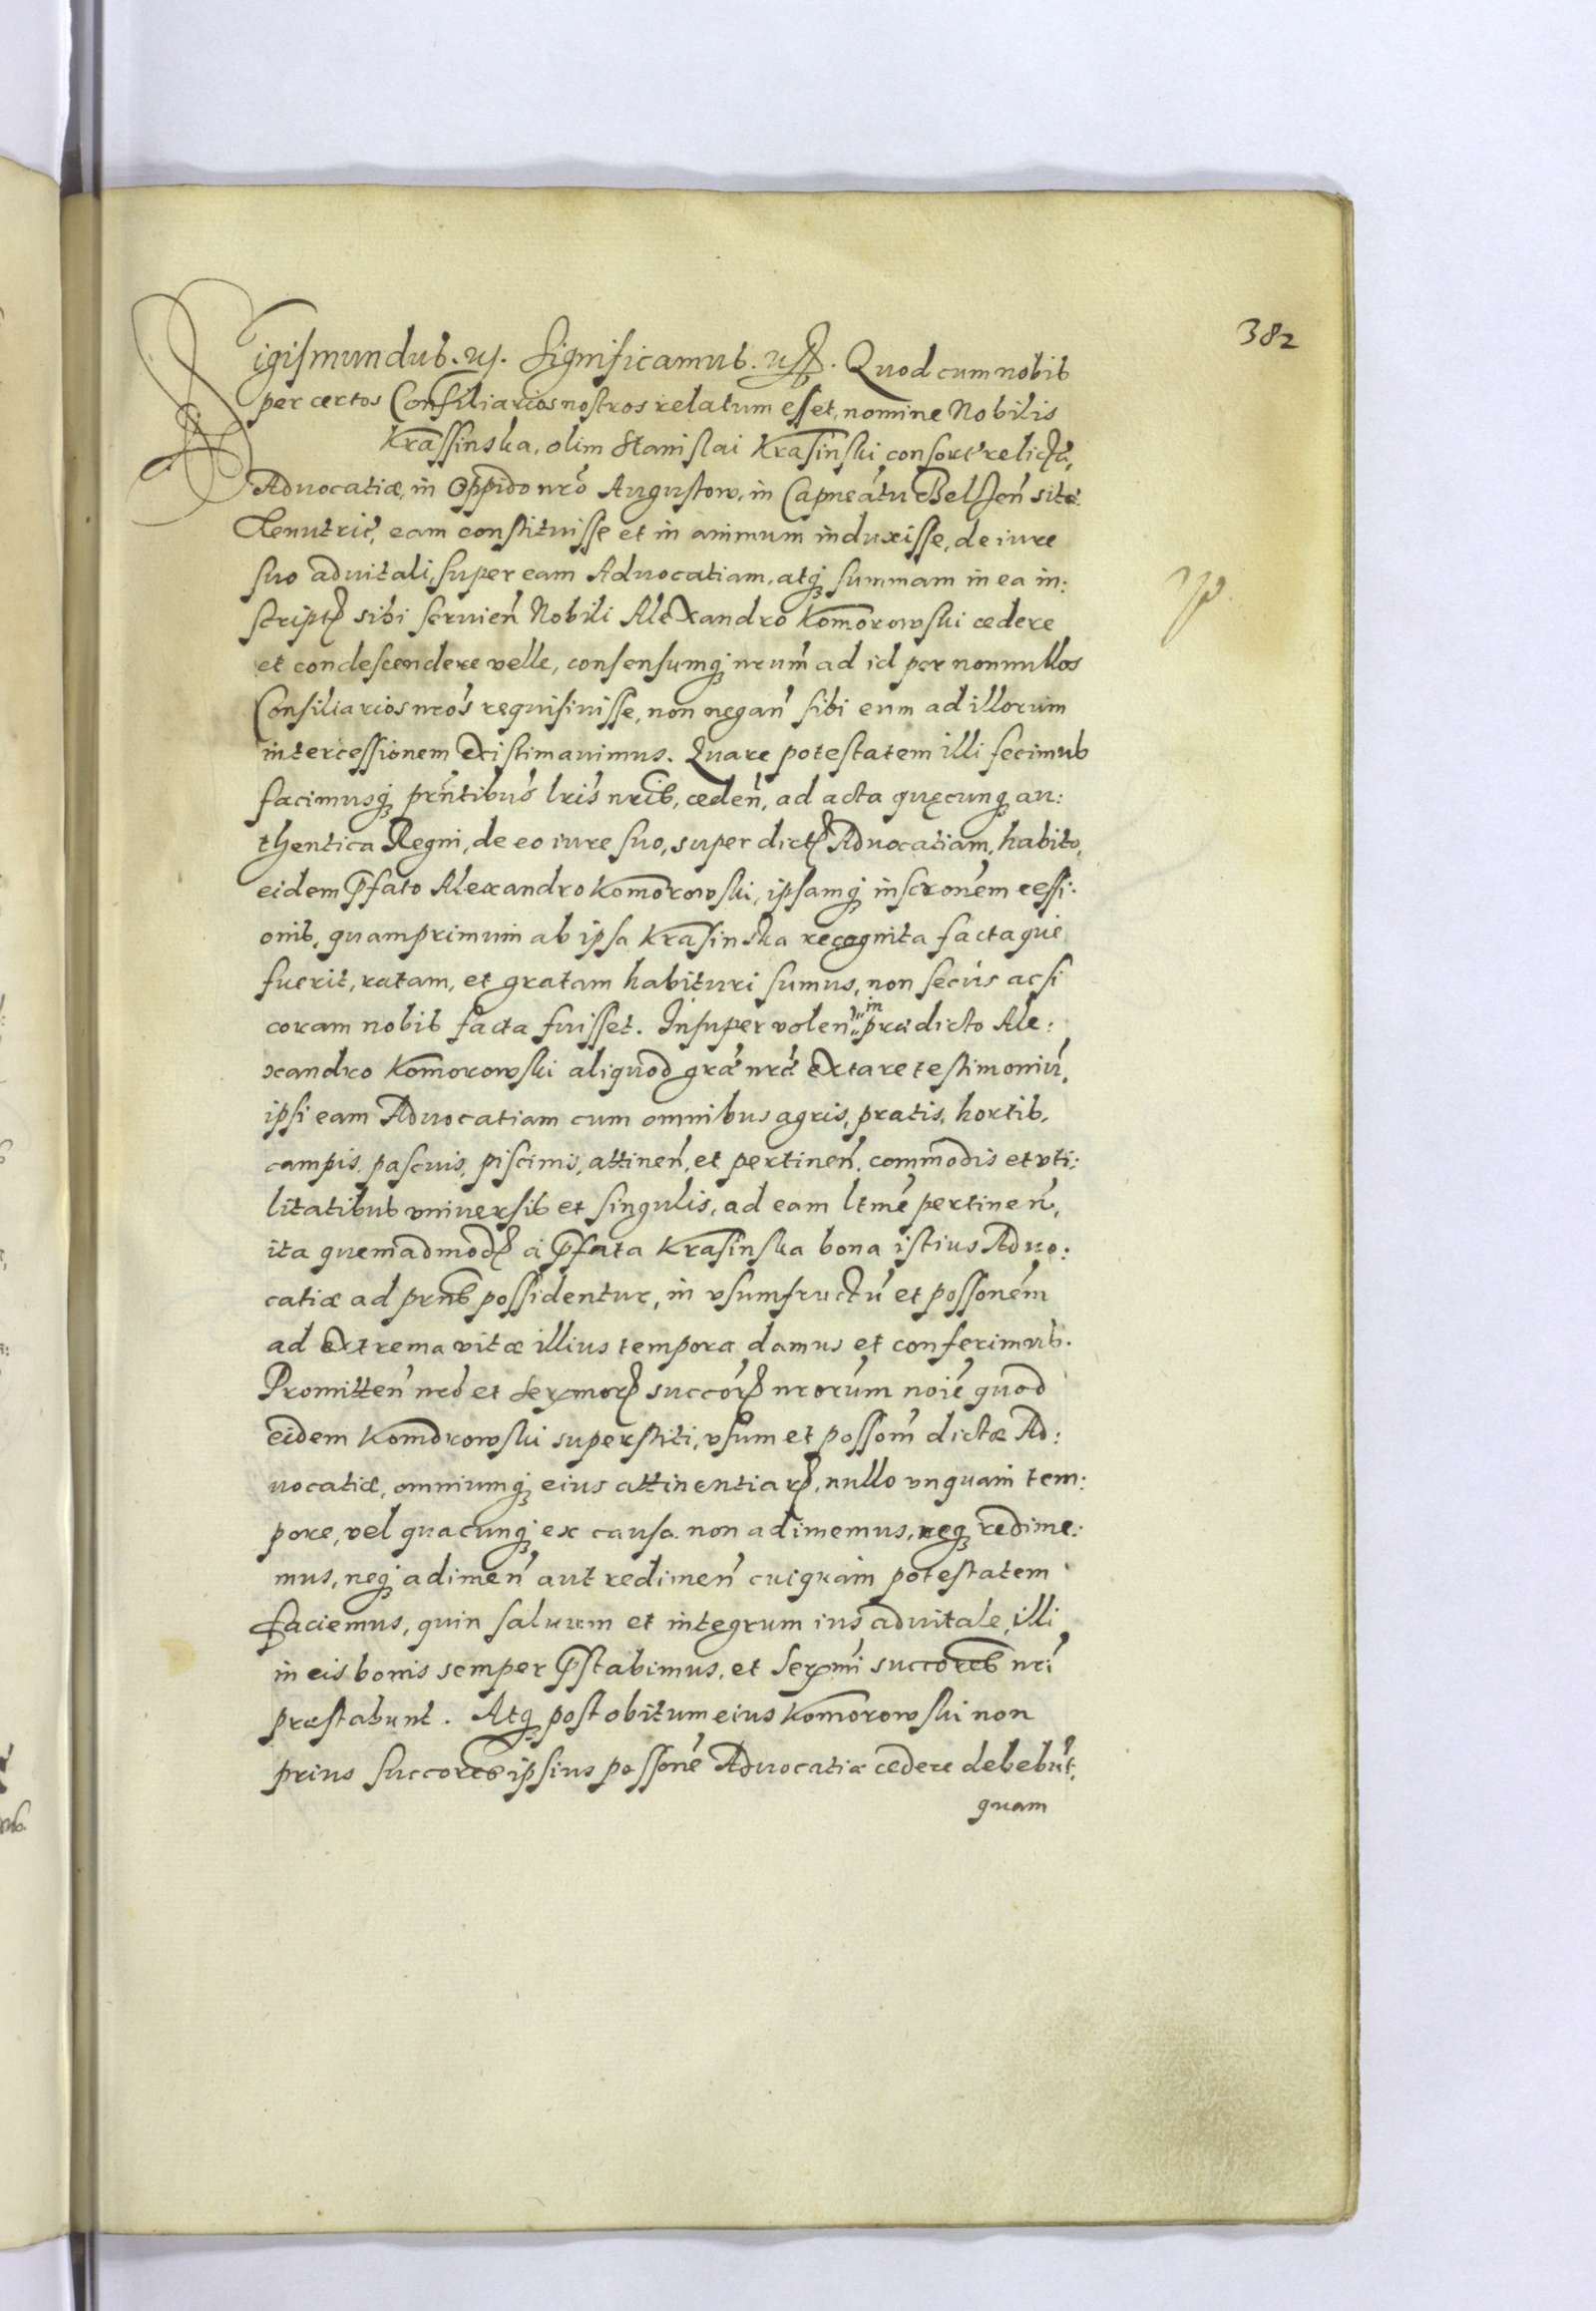 382
Sigismundus. etc. Significamus. etc. Quod cum nobis
per certos Consiliarios nostros relatum esset, nomine Nobilis
Krassinska, olim Stanislai Krasinski consort' relictæ,
Aduocatiæ, in Oppido nro Augustow, in Capneatu Belsen sitæ
Tenutric', eam constituisse et in animum induxisse, de iure
suo aduitali, super eam Aduocatiam, atq; summam in ea in:
script sibi seruien' Nobili Alexandro Komorowski cedere
et condescendere velle, consensumq; nrum ad id per nonnullos
Consiliarios nros requisiuisse, non negan' sibi eum ad illorum
intercessionem existimauimus. Quare potestatem illi fecimus
facimusq; prntibus lris nris, ceden', ad acta quęcunq; au:
thentica Regni, de eo iure suo, super dict Aduocatiam, habito,
eidem pfato Alexandro Komorowski, ipsamq; inscronem cessi:
onis, quamprimum ab ipsa Krasinska recognita factaque
fuerit, ratam, et gratam habituri sumus, non secus acsi
coram nobis facta fuisset. Insuper volen' in prædicto Ale:
xandro Komorowski aliquod græ nræ extare testimoniu',
ipsi eam Aduocatiam cum omnibus agris, pratis, hortis,
campis, pascuis, piscinis, attinen', et pertinen', commodis et vti:
litatibus vniuersis et singulis, ad eam ltme pertinen',
ita quemadmod a pfata Krasinska bona istius Aduo:
catiæ ad prns possidentur, in vsumfructu' et possonem
ad extrema vitæ illius tempora damus et conferimus.
Promitten' nro et Serxmor succor nrorum noie quod
eidem Komorowski superstiti, vsum et possom dictæ Ad:
uocatiæ, omniumq; eius attinentiar, nullo vnquam tem:
pore, vel quacunq; ex causa non adimemus, neq; redime:
mus, neq; adimen' aut redimen' cuiquam potestatem
faciemus, quin saluum et integrum ius aduitale, illi
in eis bonis semper pstabimus, et Serxmi succores nri
præstabunt. Atq; post obitum eius Komorowski non
prius succores ipsius possone Aduocatiæ cedere debebut,
quam